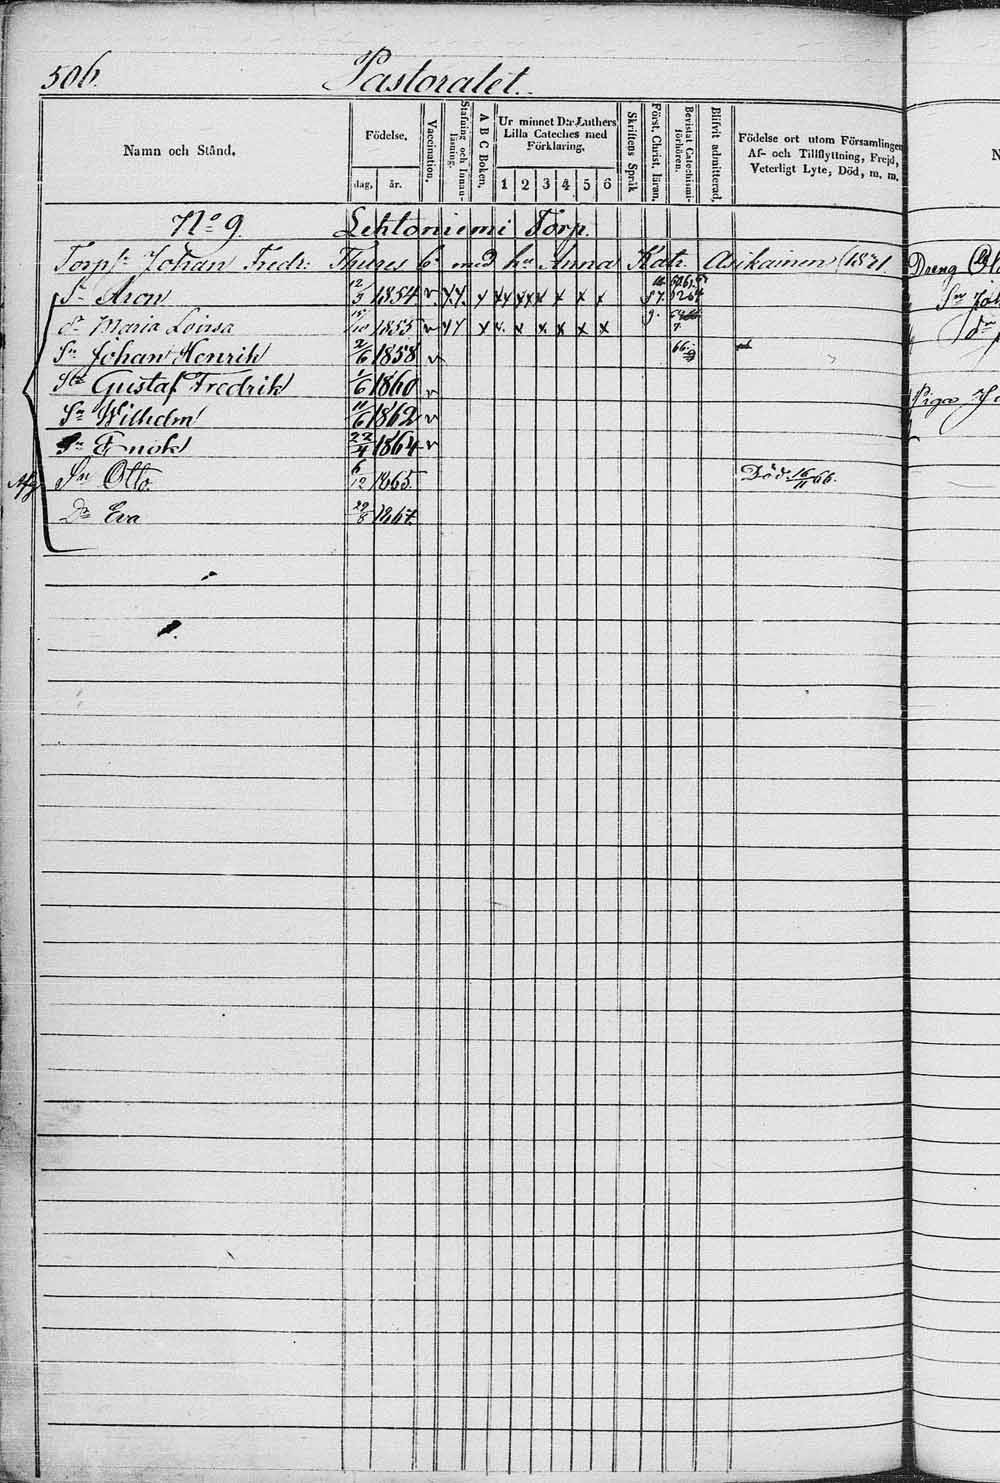 506.
Pastoralet.
Namn och Stånd.
Födelse.
dag, år.
Vaccination.
Stafning och Innanläsning.
A B C Boken.
Ur minnet D:r Luthers Lilla Cateches med Förklaring.
1 2 3 4 5 6
Skriftens Språk.
Först. Christ. läran.
Bevistat Catechismiförhören.
Blifvit admitterad.
Födelse ort utom Församlingen
Af- och Tillflyttning, Frejd,
Veterligt Lyte, Död, m. m.
N:o 9. Lehtoniemi Torp.
Johan Fredr: med hu Anna Kat: Asikainen 1871
Sn Aron 12/3 1854 v x x x x x x x
dr Maria Lovisa 15/10 1855 v x x x x x x
Sn Johan Henrik 2/6 1858 v
Gustaf Fredrik 1/6 1860 v
Sn Wilhelm 11/6 1862 v
Sn Enok 22/4 1864 v
Sn Otto 6/12 1865. Död 16/11 66.
Dr Eva 29/8 1867.
Dreng
Piga